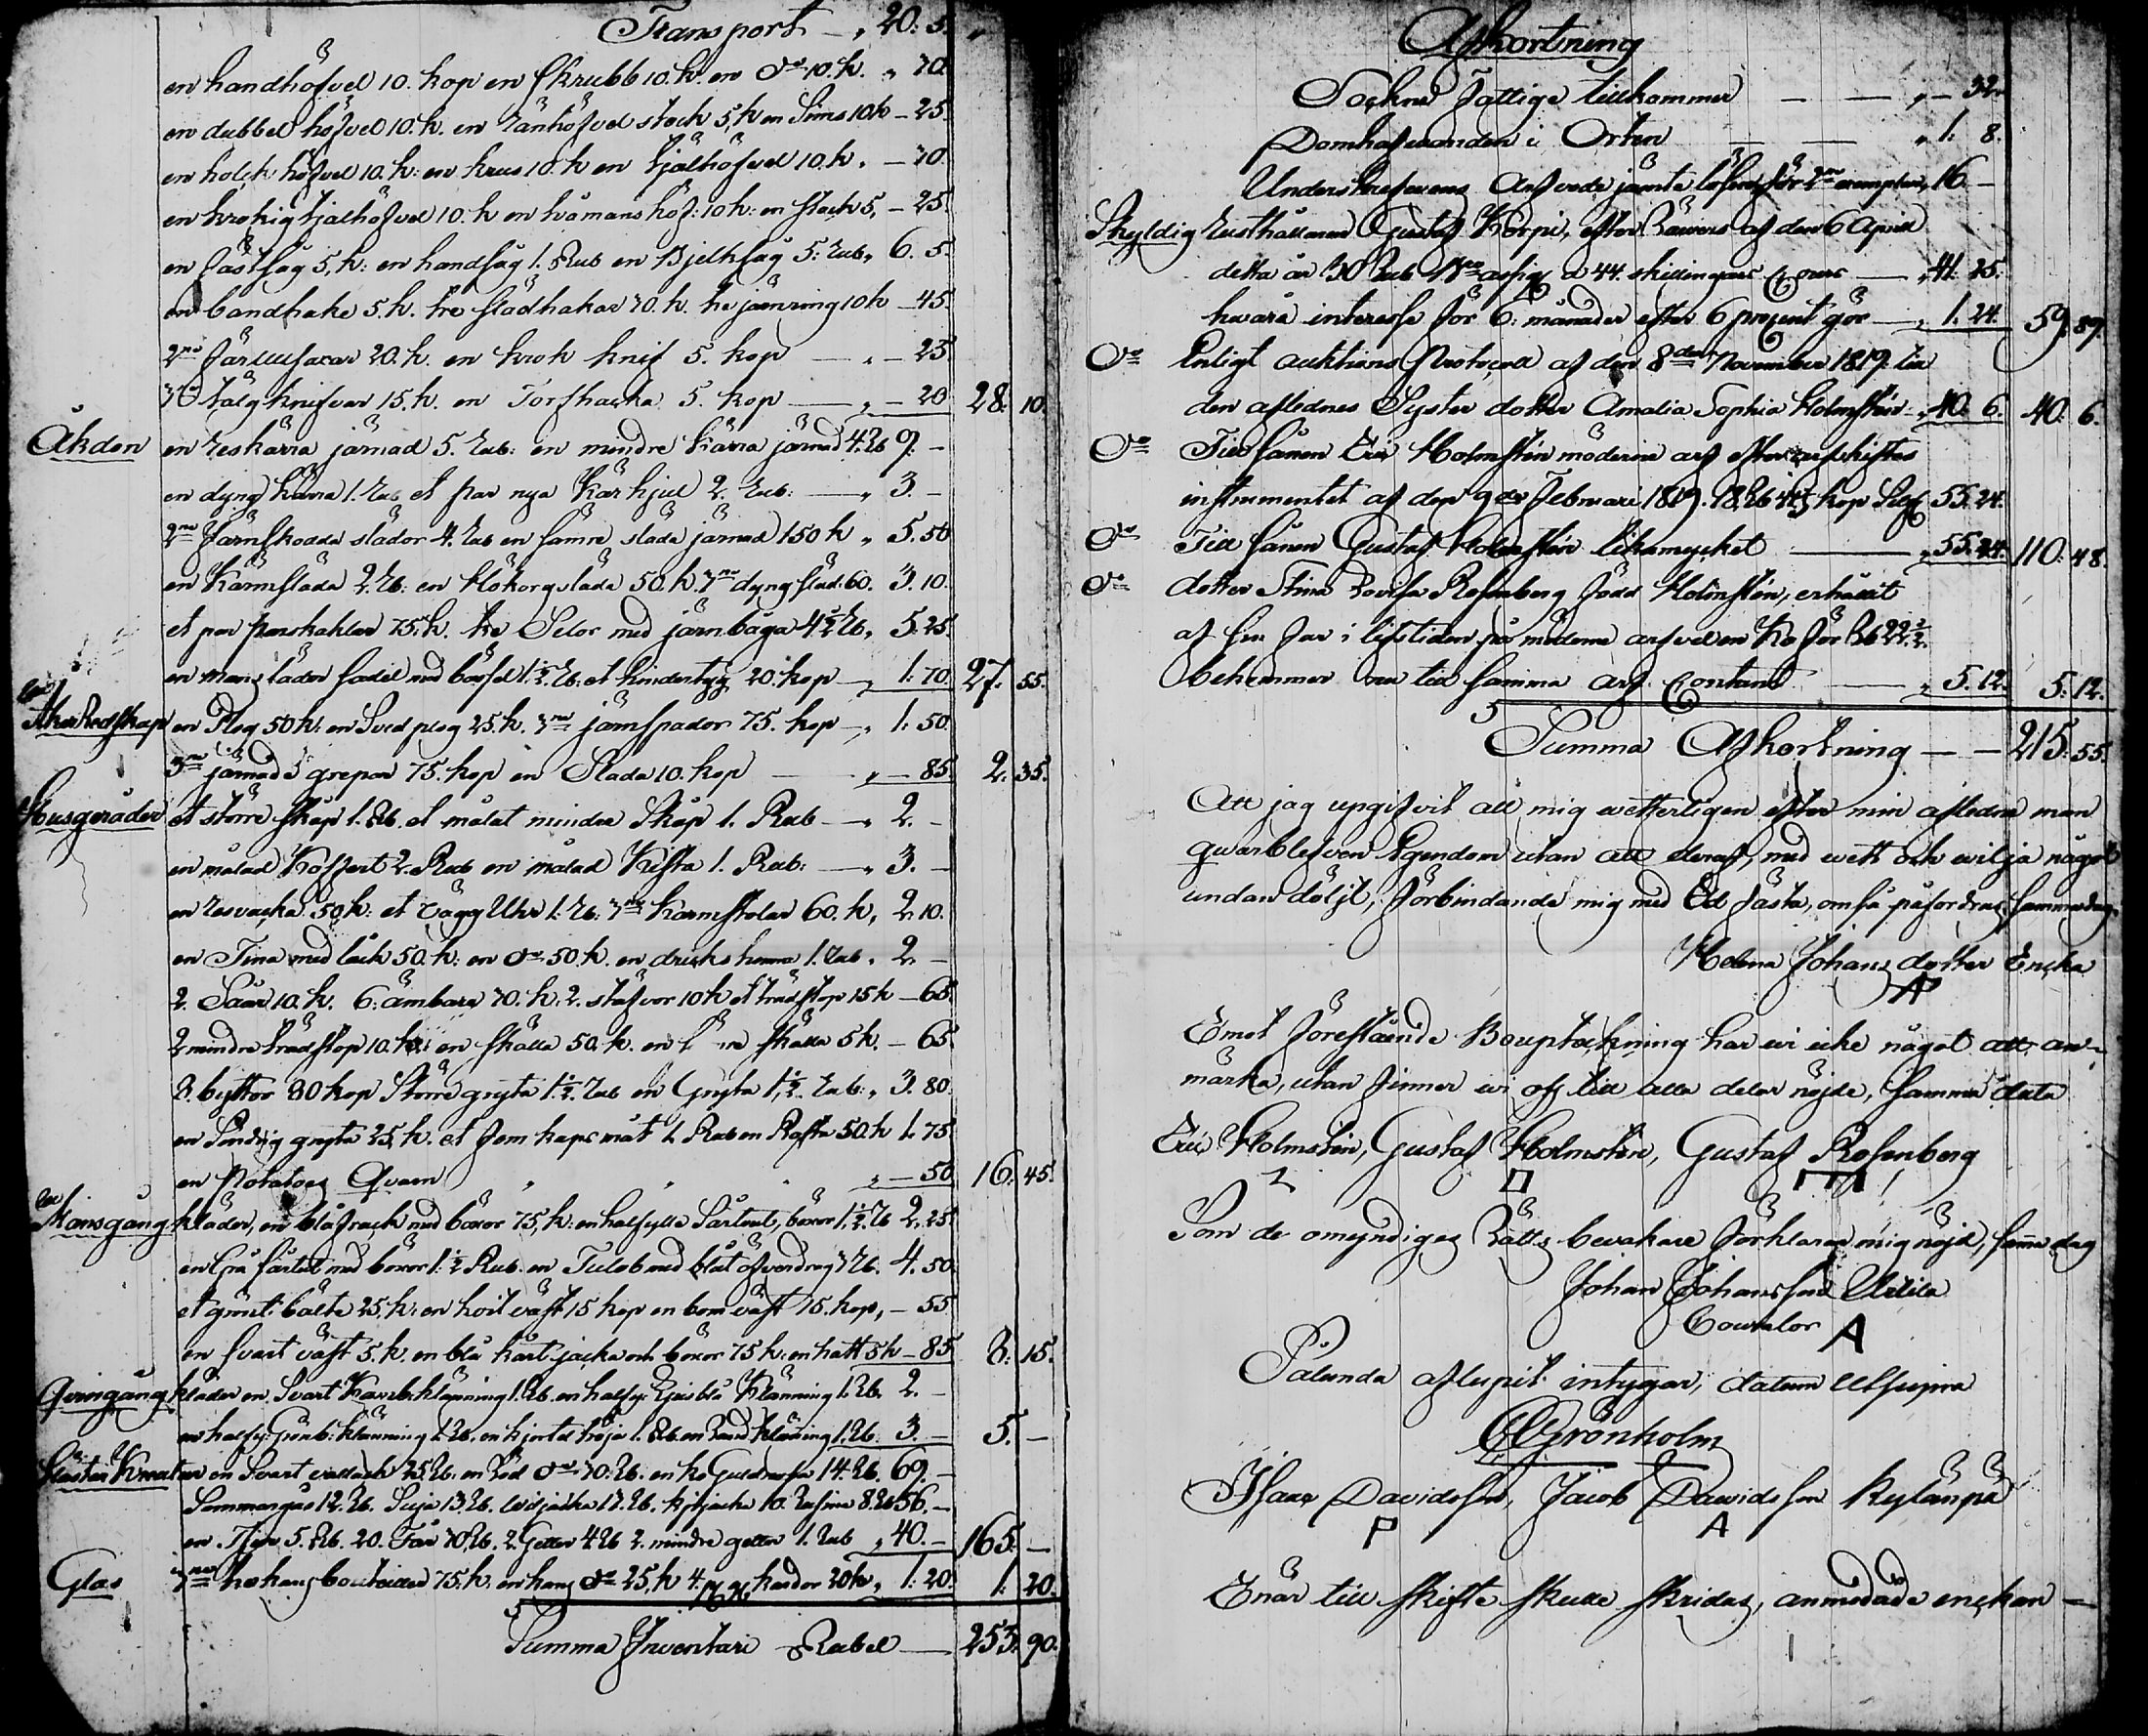 Transport — „ 20. 5. „
en handhöfvel 10. kop en skrubb 10. k. en do 10. k. „ 30
en dubbel höfvel 10. k. en ränhöfvel stock 5, k en Sims 10 k – 25
en holck höfvel 10. k: en krus 10. k en kjälhöfvel 10. k. – 30
en krokig kjälhöfvel 10. k en höf: 10 k: en stock 5, – 25.
en såg 5, k: en handsåg 1. Rub en Bjelksåg 5: Rub, 6. 5.
en bandhake 5. k. tre städhakar 30. k. tre järnring 10 k – 45.
2ne 20. k. en krok knif 5. kop — „ – 25
3ne tälg knifvar 15. k. en Torfhacka 5. kop — „ – 20 28. 10.
Åkdon en reskärra järnad 5. Rub: en mindre kärra järnad 4. Rb 9. –
en dyng kärra 1. Rub et par nya Kärhjul 2. Rub: — „ 3. –
2ne Järnskodda slädor 4. Rub en sämre släde järnad 150 k „ 5. 50
en Karmsläda 2. Rb: en Hökorgsläda 50. k. 3ne dyngsläd: 60. 3. 10.
et par 75. k. tre Selor med järnbåga 4½ Rb, 5. 25.
en mans läder sadel med 1½ Rb: et hindertyg 20. kop — „ 1. 70. 27. 55.
Åker Redskap en Plog 50 k: en Sved plog 25. k. 3ne järnspador 75. kop — „ 1. 50.
3ne järnade grepar 75. kop en Slada 10. kop — „ – 85. 2. 35.
Husgeråder et större skåp 1. Rb. et målat mindre Skåp 1. Rub — „ 2. –
en målad Koffert 2. Rub en målad Kista 1. Rub: — „ 3. –
en resväska 50 k: et Vägg Uhr 1. Rb: 3ne Karmstolar 60. k, 2. 10.
en Tina med låck 50. k: en do 50. k. en dricks kanna 1. Rub. 2. –
2. Såar 10. k. 6. ämbare 30. k. 2. stäfvor 10 k et trädstop 15 k – 65.
2 mindre trädstop 10. k. en skålla 50. k. en skålla 5 k. – 65.
2. byttor 80 kop Större gryta 1½. Rub en Gryta 1½. Rub: „ 3. 80
en gryta 25, k. et fem kaps mått 1. Rub en 50. k 1. 75.
en Potatoes Qvarn „ „ „ – 50 16. 45.
Mansgång kläder, en blå frack med böxor 75, k: en halfsylle Sartout, böxor 1½. Rb 2. 25.
en Grå Sartut med böxor 1½ Rub. en Tulub med blåt öfverdrag 3 Rb. 4. 50.
et grönt bälte 25. k: en hvit väst 15 kop en bom väst 15. kop, – 55
en svart väst 5. k. en blå kort jacka och böxor 75 k: en hatt 5 k – 85 8. 15.
Qvingång kläder en Svart Kamb: klänning 1. Rb. en halfsy: Ljusblå Klänning 1. Rb. 2. –
en halfsy: Grön b: klänning 1. Rb. en kjortel tröja 1. Rb. en Rand klänning 1. Rb. 3. – 5. –
Kreatur en Svart vallack 25. Rb. en Röd do 30. Rb. en ko Guldrosa 14. Rb. 69. –
Sommargås 12. Rb. 13. Rb. 13. Rb. 10. 8. Rb 56. –
en Tjur 5. Rb. 20. Får 30. Rb. 2. Getter 4 Rb 2. mindre getter 1. Rub „ 40. – 165. –
Glas 3ne boutteiller 75. k. do 25. k 4. kardor 20 k „ 1. 20. 1. 20.
Summa Inventari Rubel — 253. 90.
Afkortning
Sockne Fattige tillkommer — — „ – 32.
Domhafwanden i Orten — — „ 1. 8.
Underskrefvens Arfvode jämte lösen för 2ne exemplar, 16. –
Skyldig rusthållaren Gustaf Korpi, efter Rewers af den 6 April
detta år 30 Rub à 44. skillingar — „ 41. 25:
hwars interesse för 6. månader efter 6 procent gör — „ 1. 24. 59. 89.
do Enligt auktions Protocoll af den 8de November 1819. till
den aflednes Syster dotter Amalia Sophia Holmstén — 40. 6. 40. 6.
do Till sånen Eric Holmstén möderne arf efter arfskiftes
instrumentet af den 9de Februari 1819. kop Silf 55. 24.
do Till sånen Gustaf Holmstén likamycket — „ 55. 24. 110. 48.
do dotter Stina Lovisa Rosenberg född Holmstén, erhållit
af sin far i lifstiden på möderne arfvet en Ko för Rb 22½.
bekommer nu till samma arf Contant — „ 5. 12. 5. 12.
Summa Afkortning — — 215. 55.
Att jag upgifvit all mig wetterligen efter min afledne man
qwarblefven Egendom utan att deraf, med wett och wilja något
undandöljt, förbindande mig med Ed fästa, om så påfordras, samma dag.
Helena Johans dotter Encka
Emot föreståënde Bouptekning har wi icke något att an-
märka, utan finner wi oss till alla delar nöjde, samma dato
Eric Holmstén, Gustaf Holmstén, Gustaf Rosenberg
Som de omyndigas Rätts bevakare förklarar mig nöjd, samma dag
Johan Johansson Uctila
Courator A
Sålunda aflupit intygar, datum utsupra
Grönholm
Isaac Davidsson, Jacob Dawidsson Kylänpä
P A
Enär till skifte skulle skridas, anmodade enckan —